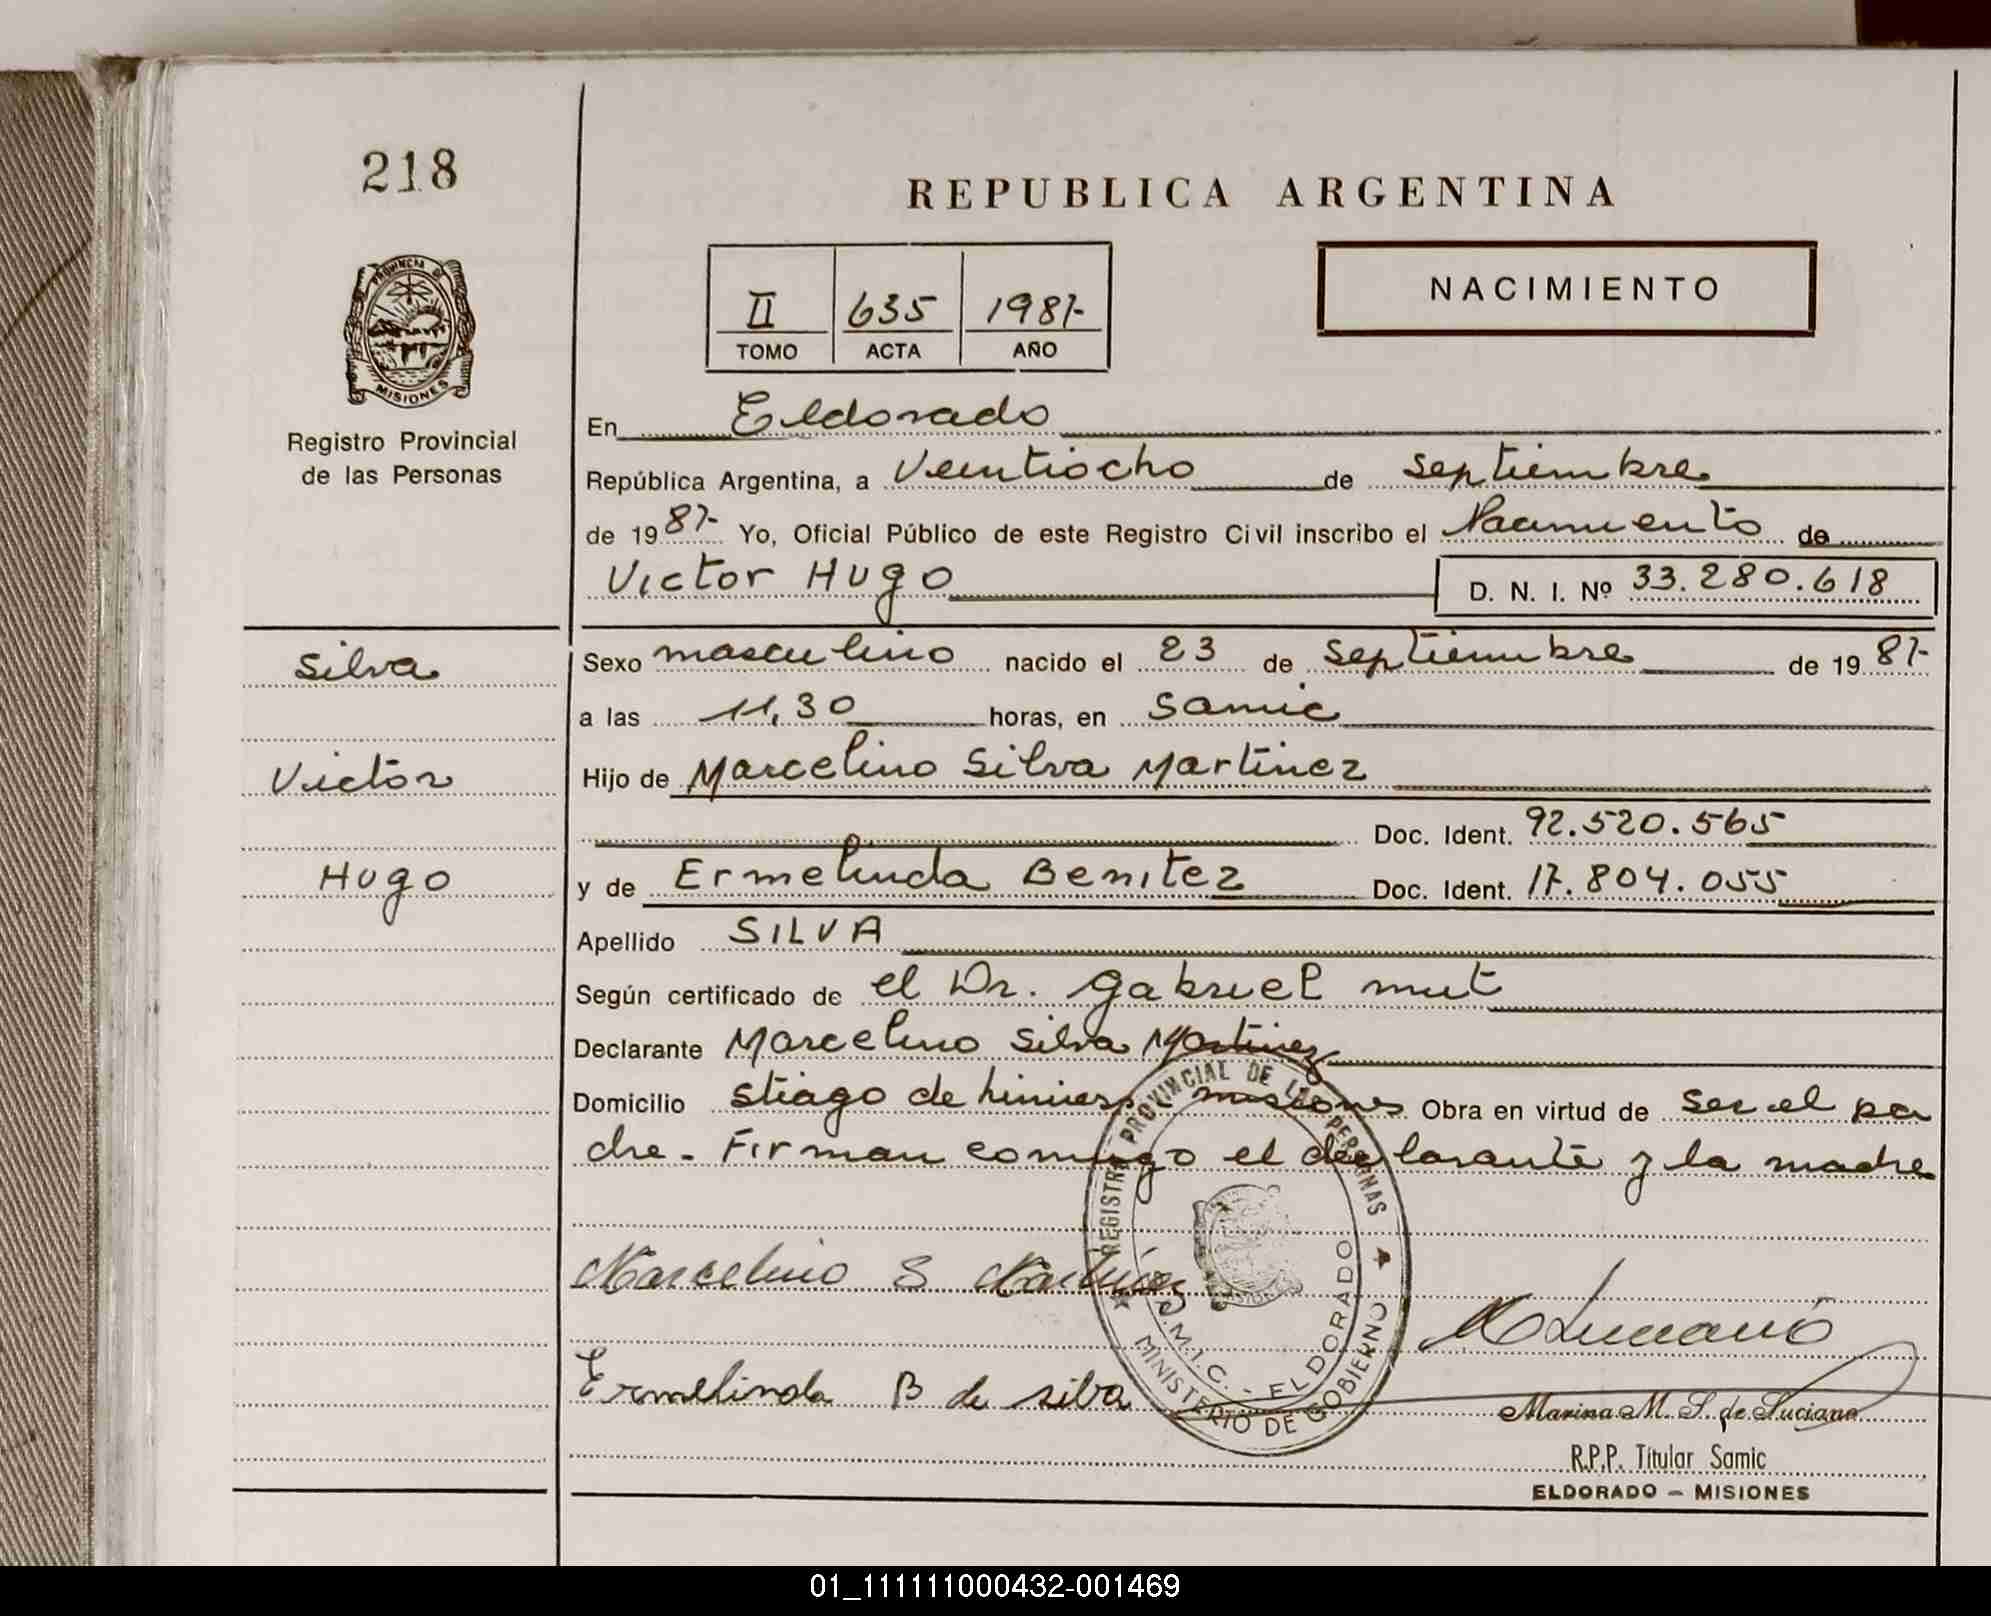 218
REPUBLICA ARGENTINA
PROVINCIA DE
MISIONES
Registro Provincial
de las Personas
NACIMIENTO
II 635 1987-
TOMO ACTA AÑO
En Eldorado
República Argentina, a Veintiocho de septiembre
de 1987- Yo, Oficial Público de este Registro Civil inscribo el Nacimiento de
Victor Hugo D. N. I. Nº 33.280.618
Silva
Victor
Hugo
Sexo masculino nacido el 23 de septiembre de 1987-
a las 11,30 horas, en Samic
Hijo de Marcelino Silva Martinez
Doc. Ident. 92.520.565
y de Ermelinda Benitez Doc. Ident. 17.804.055
Apellido SILVA
Según certificado de el Dr. Gabriel Mut
Declarante Marcelino Silva Martinez
Domicilio Stiago de Liniers Misiones Obra en virtud de ser el pa
dre - Firman conmigo el declarante y la madre
Marcelino S Martinez
Ermelinda B de silva
REGISTRO PROVINCIAL DE LAS PERSONAS
S.M.I.C. - ELDORADO
MINISTERIO DE GOBIERNO
Marina M. S. de Luciano
R.P.P. Titular Samic
ELDORADO - MISIONES
01_111111000432-001469